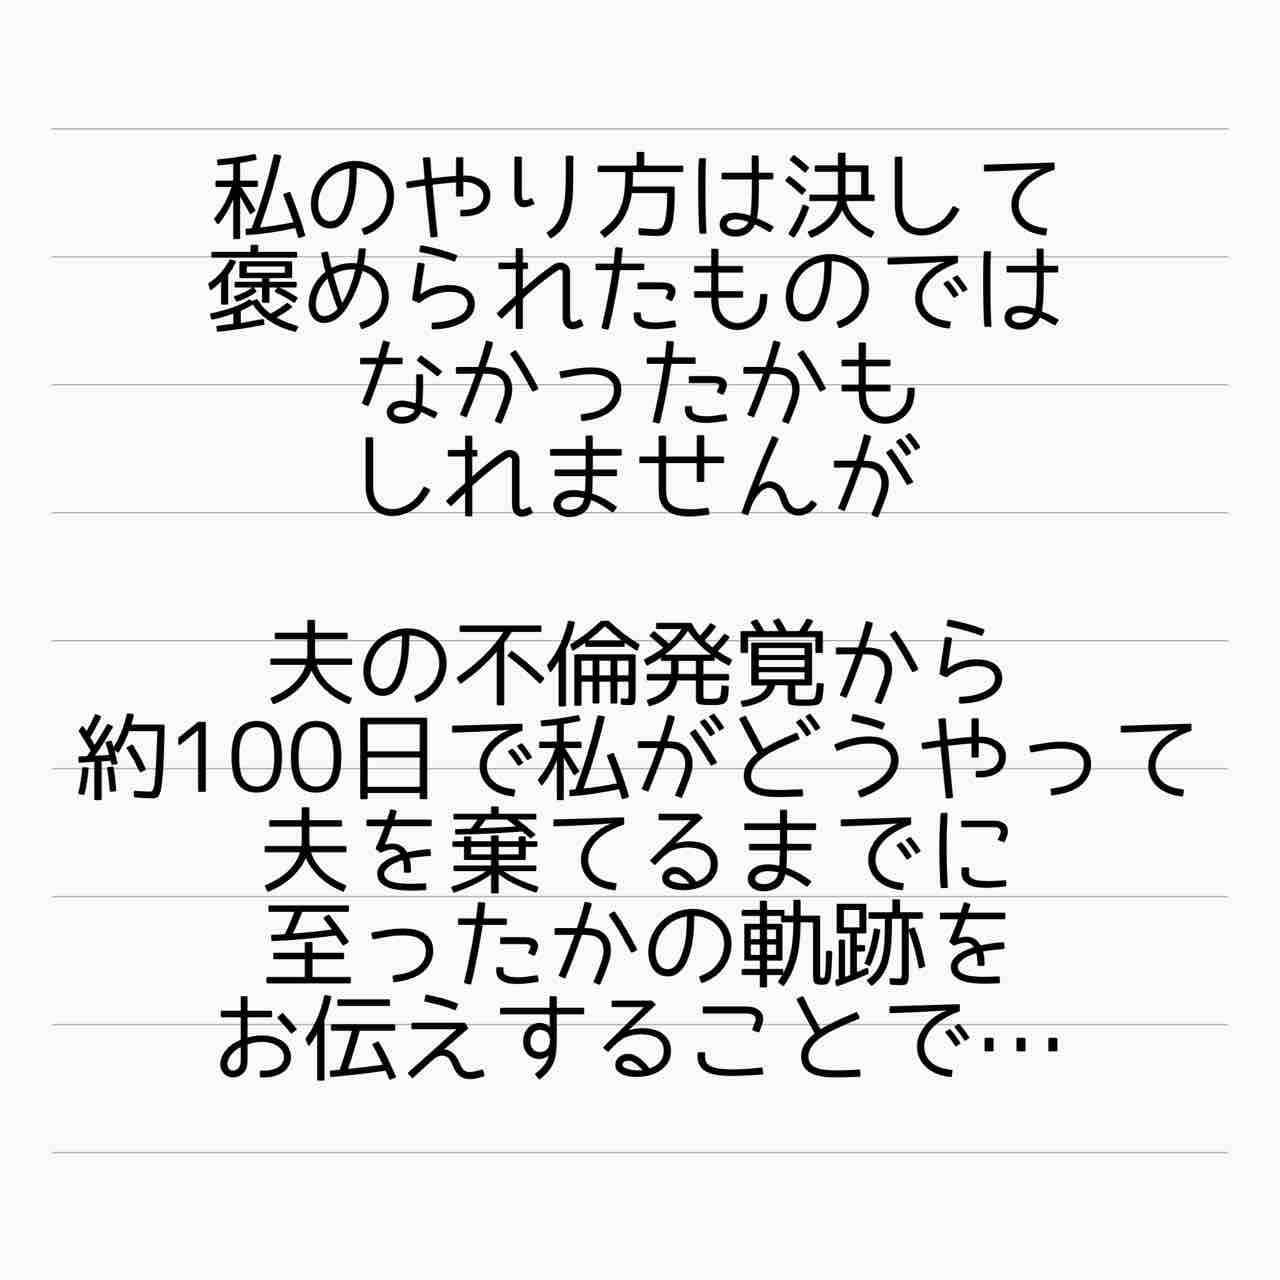 私のやり方は決して
褒められたものでは
なかったかも
しれませんが
夫の不倫発覚から
約100日で私がどうやって
夫を棄てるまでに
至ったかの軌跡を
お伝えすることで…